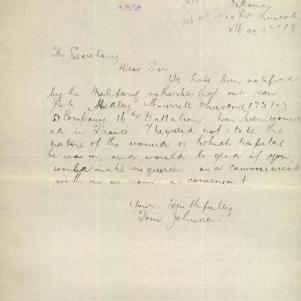 7/5/18
The Secretary
Dear Sir
We have been notified
by the Military authorities that our son
Pte Hedley Murrell Johnson (1751A)
D Company 16th Battalion has been wound
ed in France. They did not state the
nature of the wound or which hospital
he was in, and would be glad if you
would make inquiries and communicate
with us as soon as convenient
Yours Faithfully
Tom Johnson